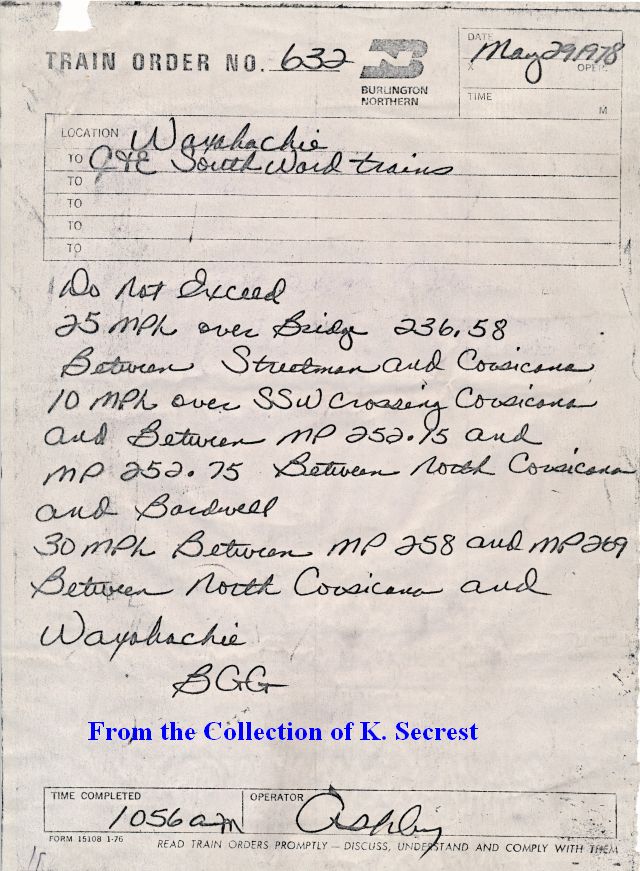 TRAIN ORDER NO. 632
BURLINGTON
NORTHERN
DATE May 29 1978
X OPER.
TIME
M
LOCATION Waxahachie
TO C&E South Ward trains
TO
TO
TO
TO
Do Not Exceed
25 MPh over Bridge 236.58
Between Streetman and Corsicana
10 MPh over SSW Crossing Corsicana
and Between MP 252.15 and
MP 252.75 Between North Corsicana
and Bardwell
30 MPh Between MP 258 and MP 269
Between North Corsicana and
Waxahachie
BGG
From the Collection of K. Secrest
TIME COMPLETED 1056 am
OPERATOR Ashby
FORM 15108 1-76
READ TRAIN ORDERS PROMPTLY — DISCUSS, UNDERSTAND AND COMPLY WITH THEM